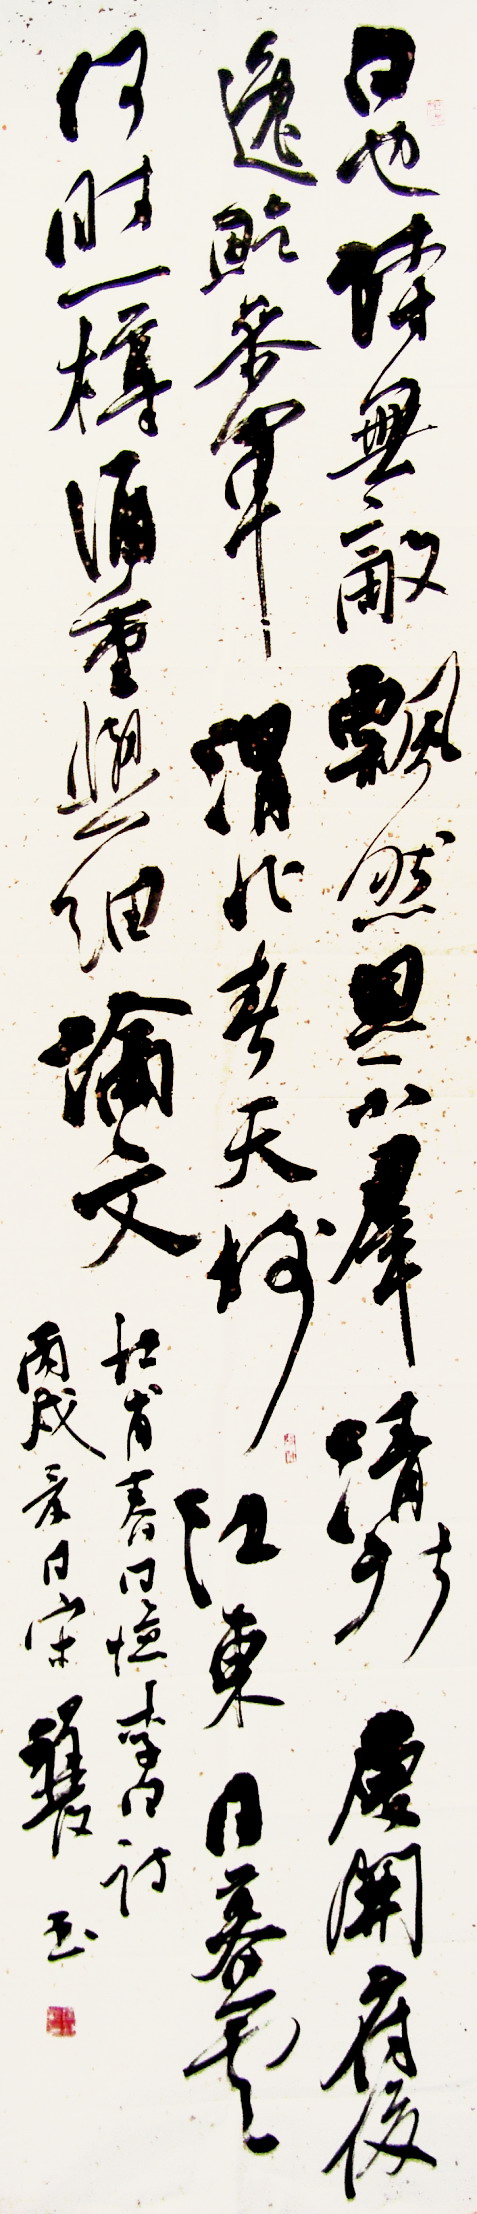 白也詩無敵飄然思不群清新庾開府俊
逸鮑參軍渭北春天樹江東日暮雲
何時一樽酒重與細論文
杜甫春日憶李白詩
丙戌 日宋 玉